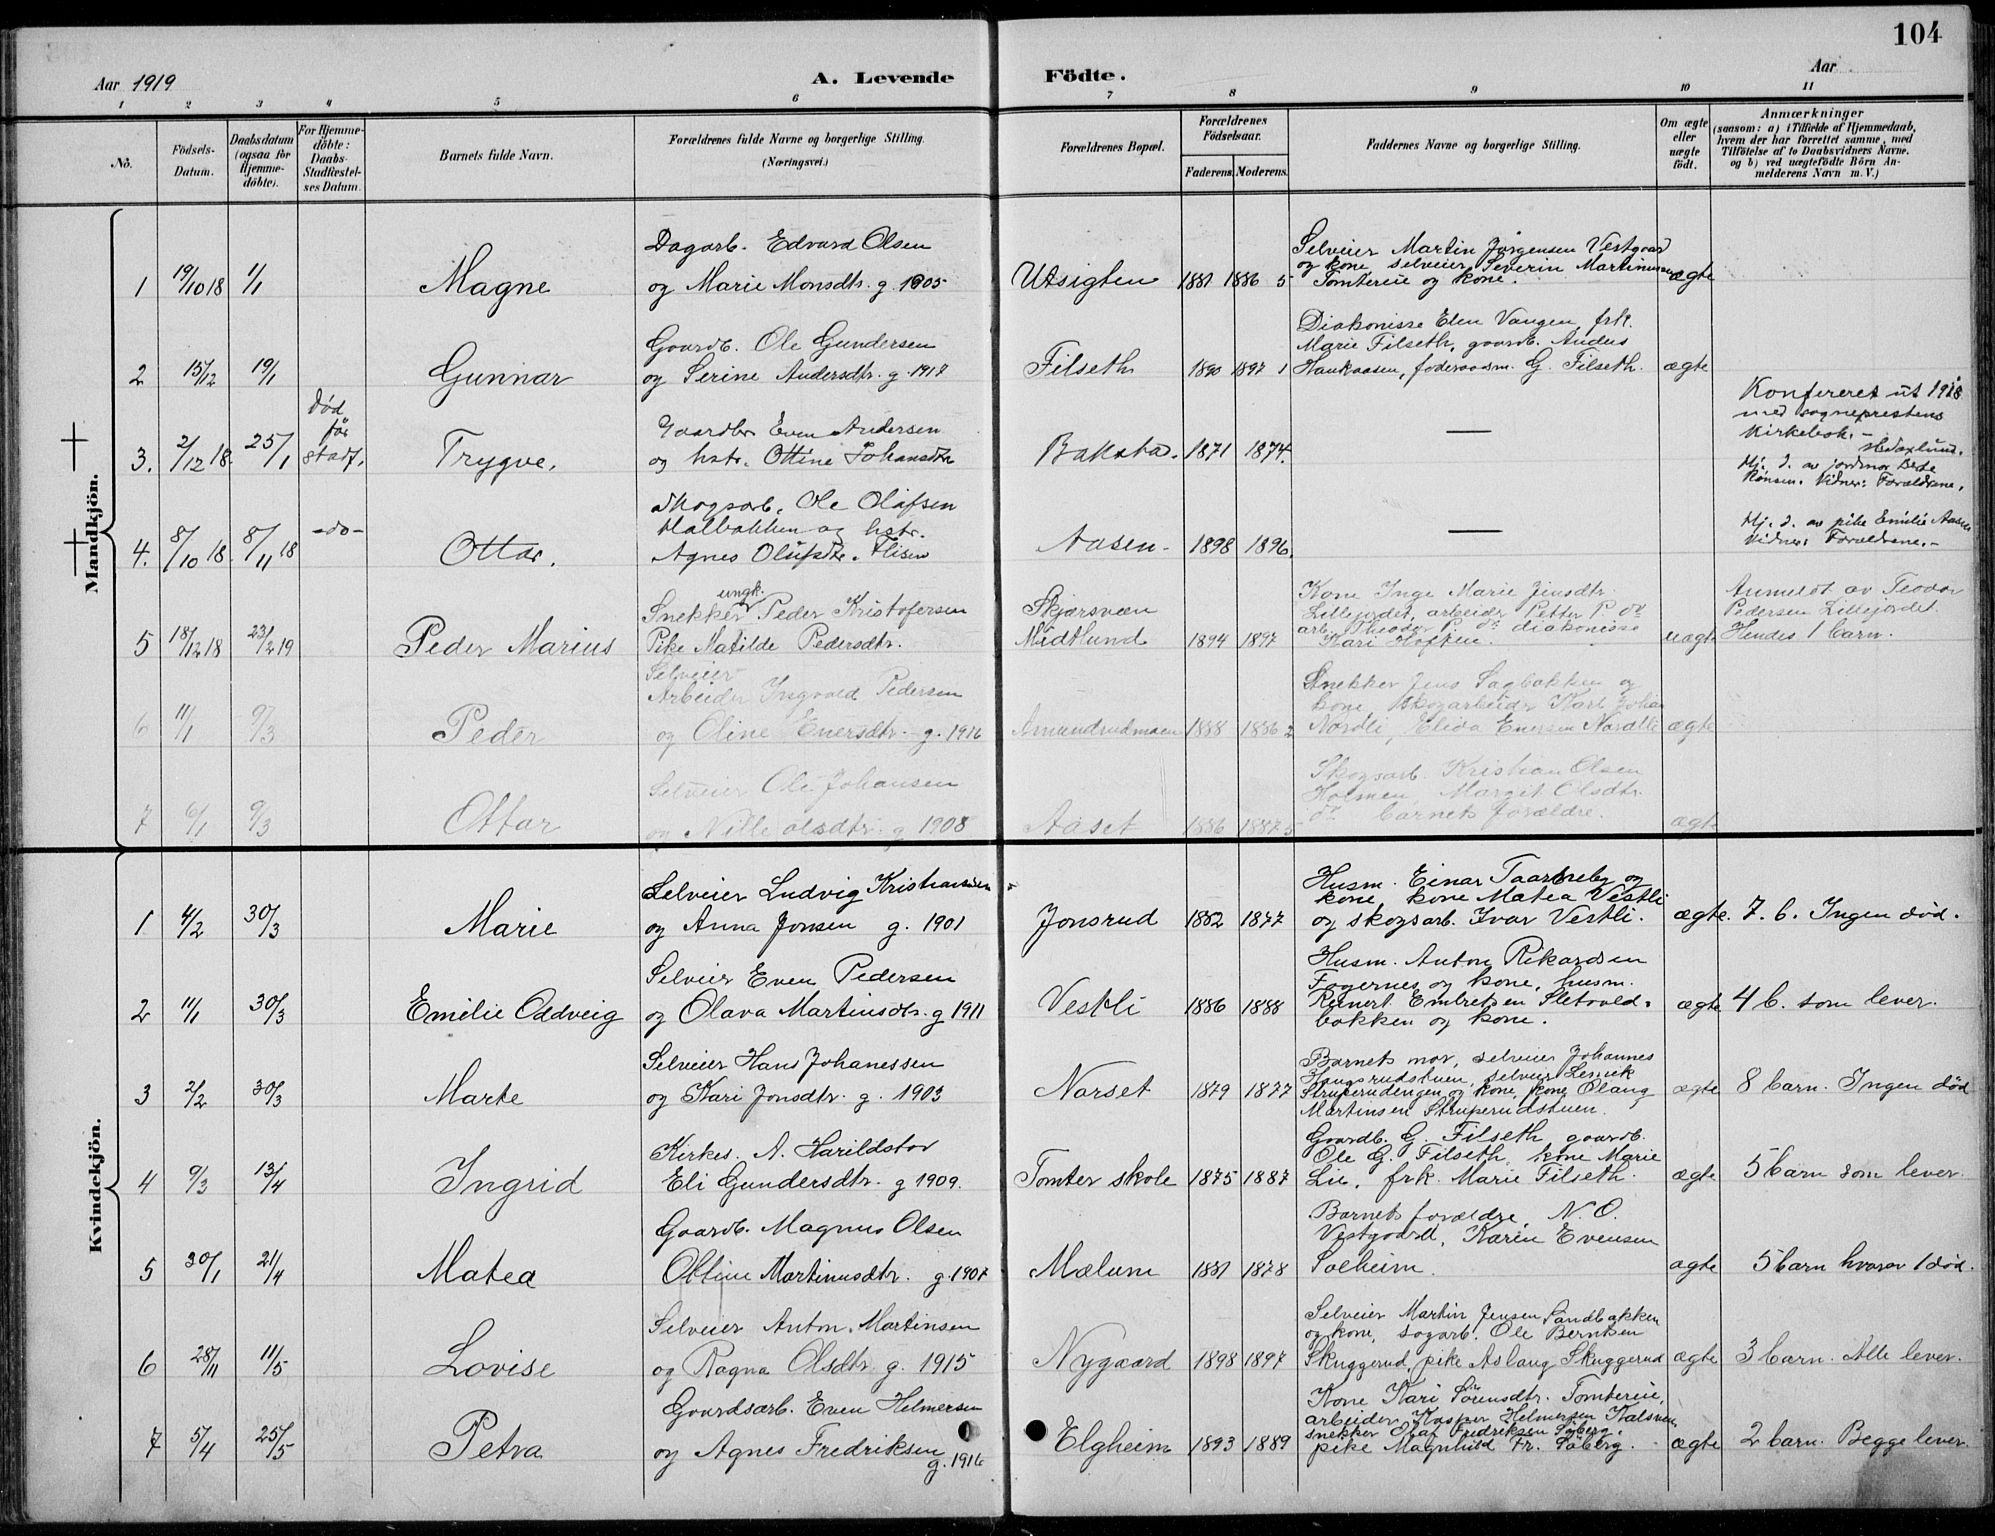 104
Aar 1919
A. Levende
Födte.
Aar
1 2 3 4 5 6 7 8 9 10 11
No.
Födsels-
Datum.
Daabsdatum
(ogsaa for
Hjemme-
döbte).
For Hjemme-
döbte:
Daabs-
Stadfæstel-
ses Datum.
Barnets fulde Navn.
Forældrenes fulde Navne og borgerlige Stilling.
(Næringsvei.)
Forældrenes Bopæl.
Forældrenes
Födselsaar.
Faderens. Moderens.
Faddernes Navne og borgerlige Stilling.
Om ægte
eller
uægte
födt.
Anmærkninger
(saasom: a) i Tilfælde af Hjemmedaab,
hvem der har forrettet samme, med
Tilföielse af to Daabsvidners Navne.
og b) ved uægtefödte Börn An-
melderens Navn m. V.)
Mandkjön.
1 19/10 18 1/1 Magne
Dagarb. Edvard Olsen
og Marie Monsdtr. g. 1905
Utsigten 1881 1886 5
Selveier Martin Jørgensen Vestgaard
og kone selveier Severin Martinusen
Tomtereie og kone.
ægte
2 15/12 19/1 Gunnar
Gaardb. Ole Gundersen
og Serine Andersdtr. g. 1917
Filseth 1890 1897 1
Diakonisse Elen Vangen, frk.
Marie Filseth, gaardb. Anders
Haukaasen, föderaadsm. G. Filseth.
ægte
3. 2/12 18. 25/1
död
för
stadf.
Trygve.
Gaardbr Even Andersen
og hstr. Ottine Johansdtr
Bakstad. 1871 1874.
—
Konfereret ut 1918
med sogneprestens
Kirkebok.-
Hj. d. av jordmor Berte
Rönsen. Vidner: Forældrene.
4. 8/10 18. 8/11 18 -do- Ottar.
Skogsarb. Ole Olafsen
Halbakken og hstr.
Agnes Olufsdtr. Flisen
Aasen- 1898 1896.
—
Hj. d. av pike Emilie Aasen
Vidner: Forældrene.-
5 18/12 18 23/2 19 Peder Marius
Snekker ungk. Peder Kristofersen
Pike Matilde Pedersdtr.
Skjærsveen
Midtlund 1894 1897
Kone Inge Marie Jensdtr
Lillejordet, arbeider Petter P. do
arb. Theodor P. do diakonisse
Kari Hoften.
uægte
Anmeldt av Teodor
Pedersen Lillejordet.
Hendes 1 barn.
6 11/1 9/3 Peder
Selveier
Arbeider Ingvald Pedersen
og Oline Enersdtr. g. 1916
Amundrudmoen 1888 1886 2
Snekker Jens Sagbakken og
kone, skogarbeider Karl Johan
Nordli, Elida Enersen Nordli
ægte
7 6/1 9/3 Ottar
Selveier Ole Johansen
og Nille Olsdtr. g 1908
Aaset 1886 1887 5
Skogsarb. Kristian Olsen
Holmen, Margit Olsdtr.
do barnets forældre.
ægte
Kvindekjön.
1 4/2 30/3 Marie
Selveier Ludvig Kristiansen
og Anna Jonsen g. 1901
Jonsrud 1882 1877
Husm. Einar Taarneby og
kone, kone Matea Vestli
og skogsarb. Ivar Vestli.
ægte. 7. b. Ingen död.
2 11/1 30/3 Emilie Oddveig
Selveier Even Pedersen
og Olava Martinsdtr. g 1911
Vestli 1886 1888
Husm. Anton Rikardsen
Fagernes og kone, husm.
Reinert Embretsen Sletvold-
bakken og kone.
ægte 4 b. som lever.
3 2/2 30/3 Marte
Selveier Hans Johanessen
og Kari Jonsdtr. g. 1903
Norset 1879 1877
Barnets mor, selveier Johannes
Haugsrudstuen, selveier
Struperudengen og kone, kone Olaug
Martinsen Struperudstuen.
ægte 8 barn. Ingen död
4 9/3 13/4 Ingrid
Kirkes. A. Harildstad
Eli Gundersdtr. g 1909.
Tomter skole 1875 1887
Gaardb. G. Filseth gaardb.
Ole G. Filseth, kone Marie
Lie, frk. Marie Filseth.
ægte 5 barn som lever.
5 30/1 21/4 Matea
Gaardb. Magnus Olsen
Ottine Martinusdtr. g. 1907
Mælum 1881 1878
Barnets forældre, N. O.
Vestgaard, Karen Evensen
Solheim.
ægte 5 barn hvorav 1 död.
6 28/11 11/5 Lovise
Selveier Anton Martinsen
og Ragna Olsdtr. g. 1915
Nygaard 1898 1897
Selveier Martin Jensen Sandbakken
og kone, sagarb. Ole Berntsen
Skuggerud, pike Aslaug Skuggerud
ægte 3 barn. Alle lever.
7 5/4 25/5 Petra
Gaardsarb. Even Helmersen
og Agnes Fredriksen
g. 1916
Elgheim 1893 1889
Kone Kari Sörensdtr. Tomtereie,
arbeider Kasper Helmersen Kalsveen
snekker Olaf Fredriksen Söberg.
pike Magnhild Fr. Söberg.
ægte 2 barn. Begge lever.